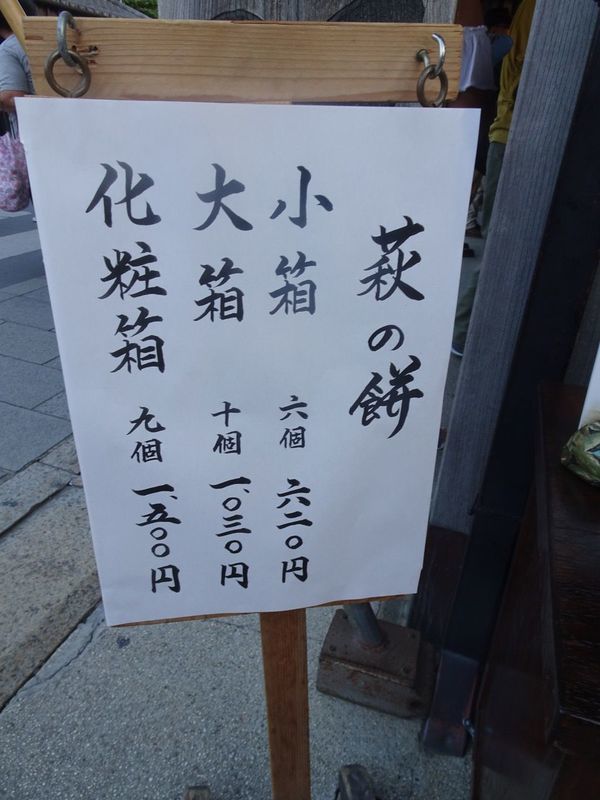 萩の餅
小箱 六個 六二〇円
大箱 十個 一、〇三〇円
化粧箱 九個 一、五〇〇円